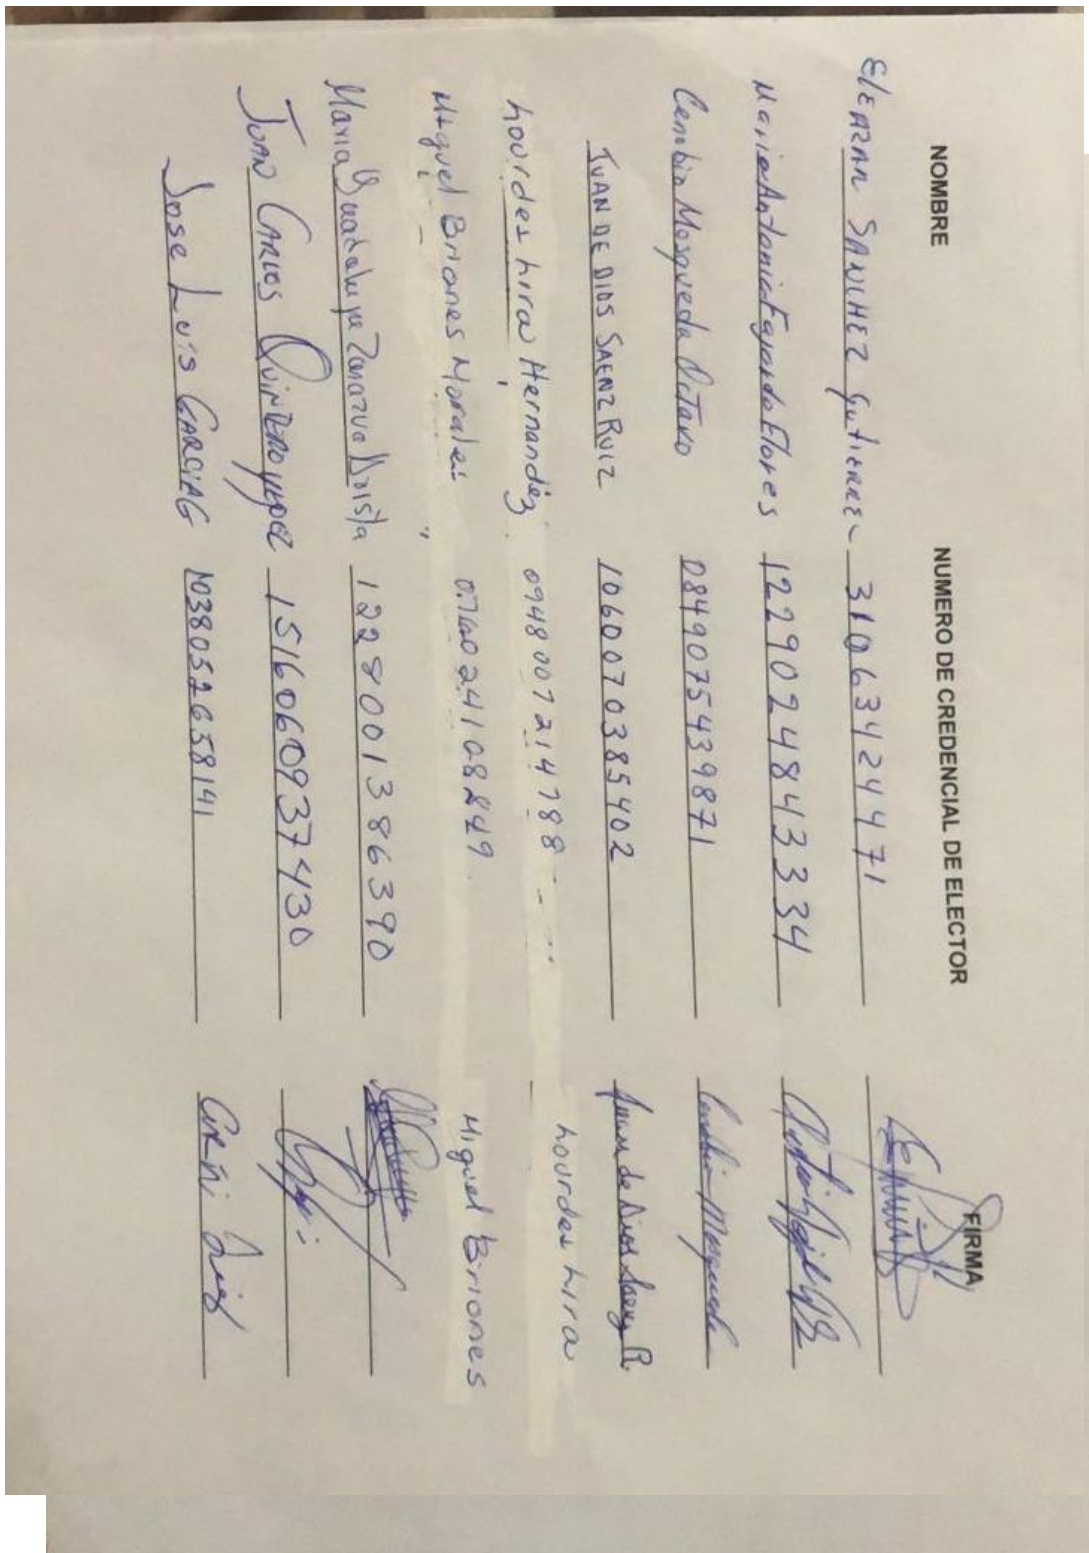 NOMBRE NUMERO DE CREDENCIAL DE ELECTOR FIRMA
ElEAZAR SANCHEZ Gutierrez 31063424471
Maria Antonia Fajardo Flores 1229024843334
Cenobio Mosqueda Octavo 0849075439871
JUAN DE DIOS SAENZ RUIZ 1060070385402 Juan de Dios Saenz R
Lourdes Lira Hernandez 0948007214788 Lourdes Lira
Miguel Briones Morales 076024108849 Miguel Briones
Maria Guadalupe 1228001386390
JUAN CARLOS QUINTERO 1516060937430
Jose Luis GARCIA G 1038052658141